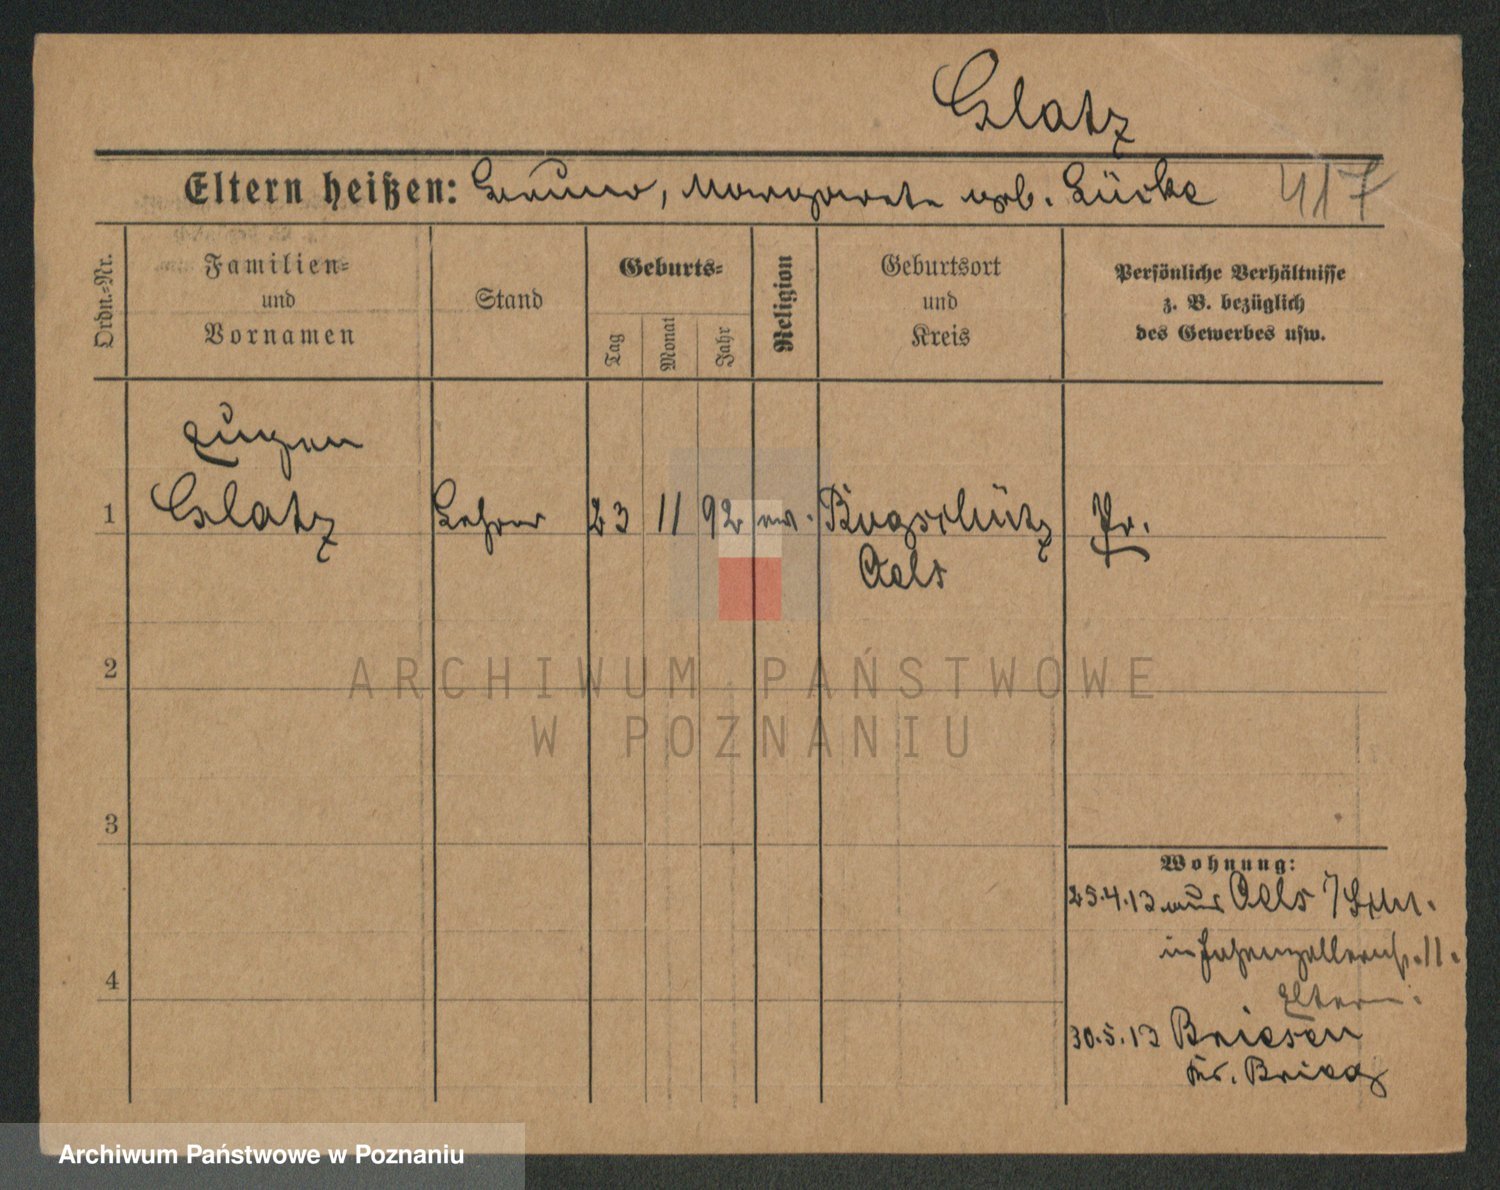 Glatz
Eltern heißen: Bruno, Margarete geb. Lücke 417
Ordn.-Nr.
Familien-
und
Vornamen
Stand
Geburts-
Tag
Monat
Jahr
Religion
Geburtsort
und
Kreis
Persönliche Verhältnisse
z. B. bezüglich
des Gewerbes usw.
Eugen
1 Glatz Lehrer 23 11 92 ev. Bogschütz Pr.
Oels
2
3
4
Wohnung:
25.4.13 aus Oels
in Hohenzollernstr. 11.
Eltern.
30.5.13 Briesen
Kr. Brieg
ARCHIWUM PAŃSTWOWE
W POZNANIU
Archiwum Państwowe w Poznaniu